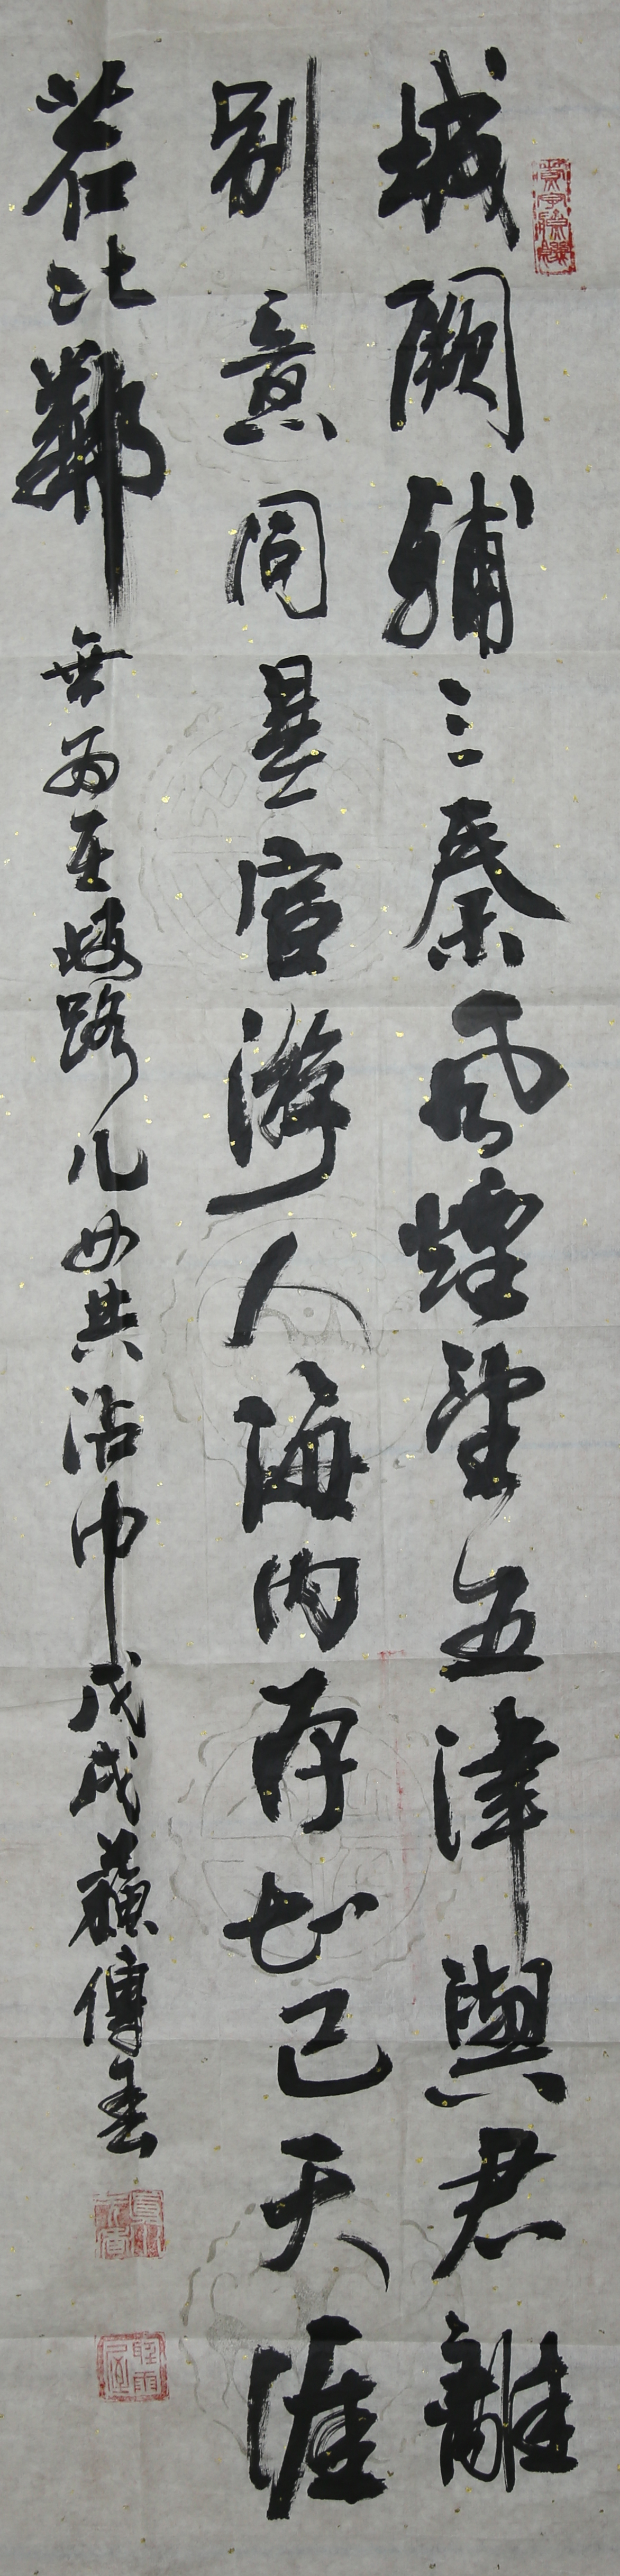 城闕輔三秦風煙望五津與君離
別意同是宦遊人海内存知己天涯
若比鄰
無為在歧路儿女共沾巾戊戌蘇傳春